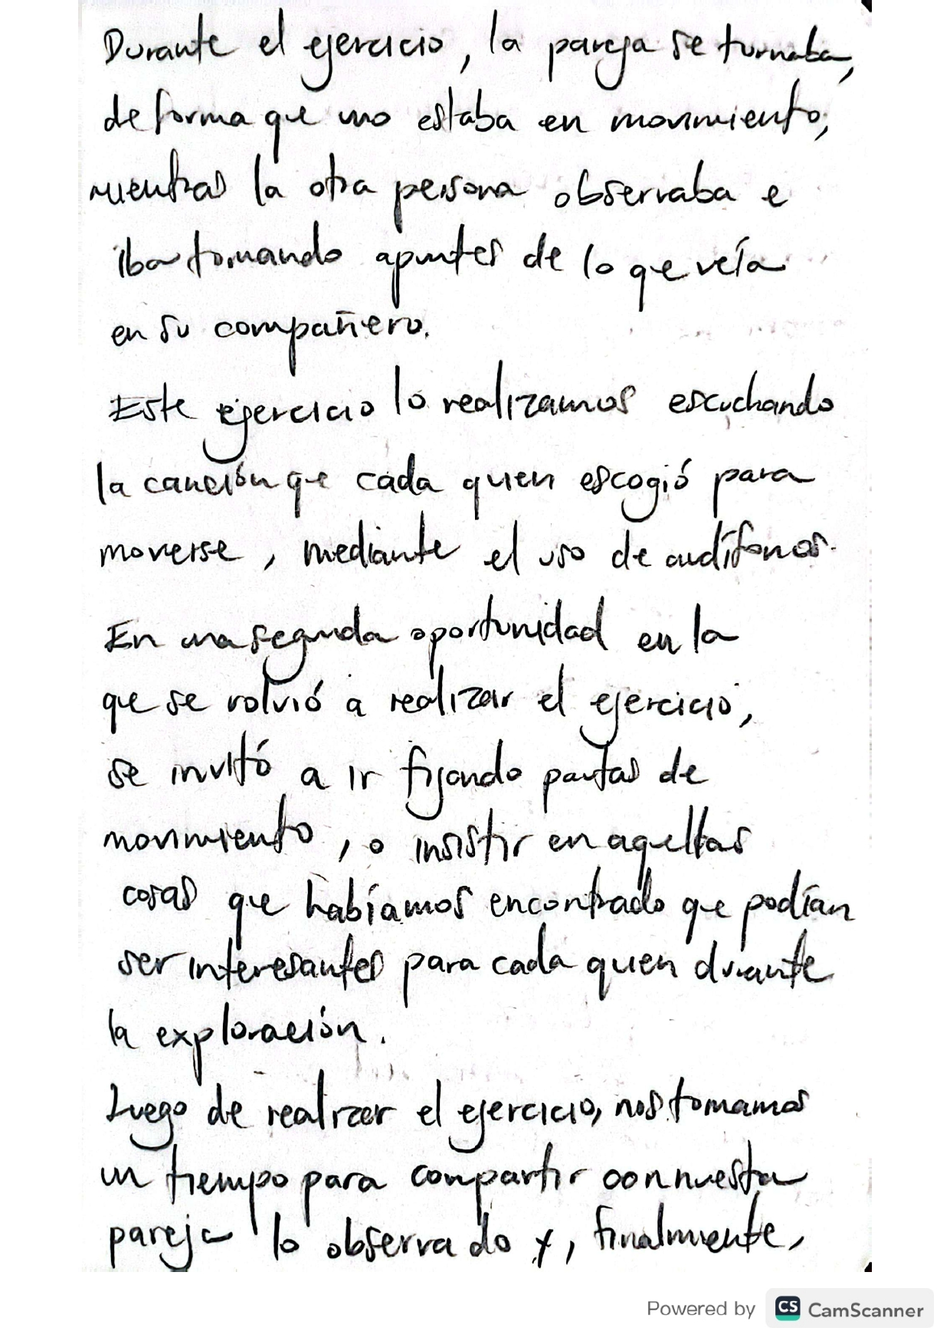 Durante el ejercicio, la pareja se turnaba,
de forma que uno estaba en movimiento,
mientras la otra persona observaba e
iba tomando apuntes de lo que veía
en su compañero.
Este ejercicio lo realizamos escuchando
la canción que cada quien escogió para
moverse, mediante el uso de audífonos.
En una segunda oportunidad en la
que se volvió a realizar el ejercicio,
se invitó a ir fijando pautas de
movimiento, o insistir en aquellas
cosas que habíamos encontrado que podían
ser interesantes para cada quien durante
la exploración.
Luego de realizar el ejercicio, nos tomamos
un tiempo para compartir con nuestra
pareja lo observado y, finalmente,
Powered by CS CamScanner